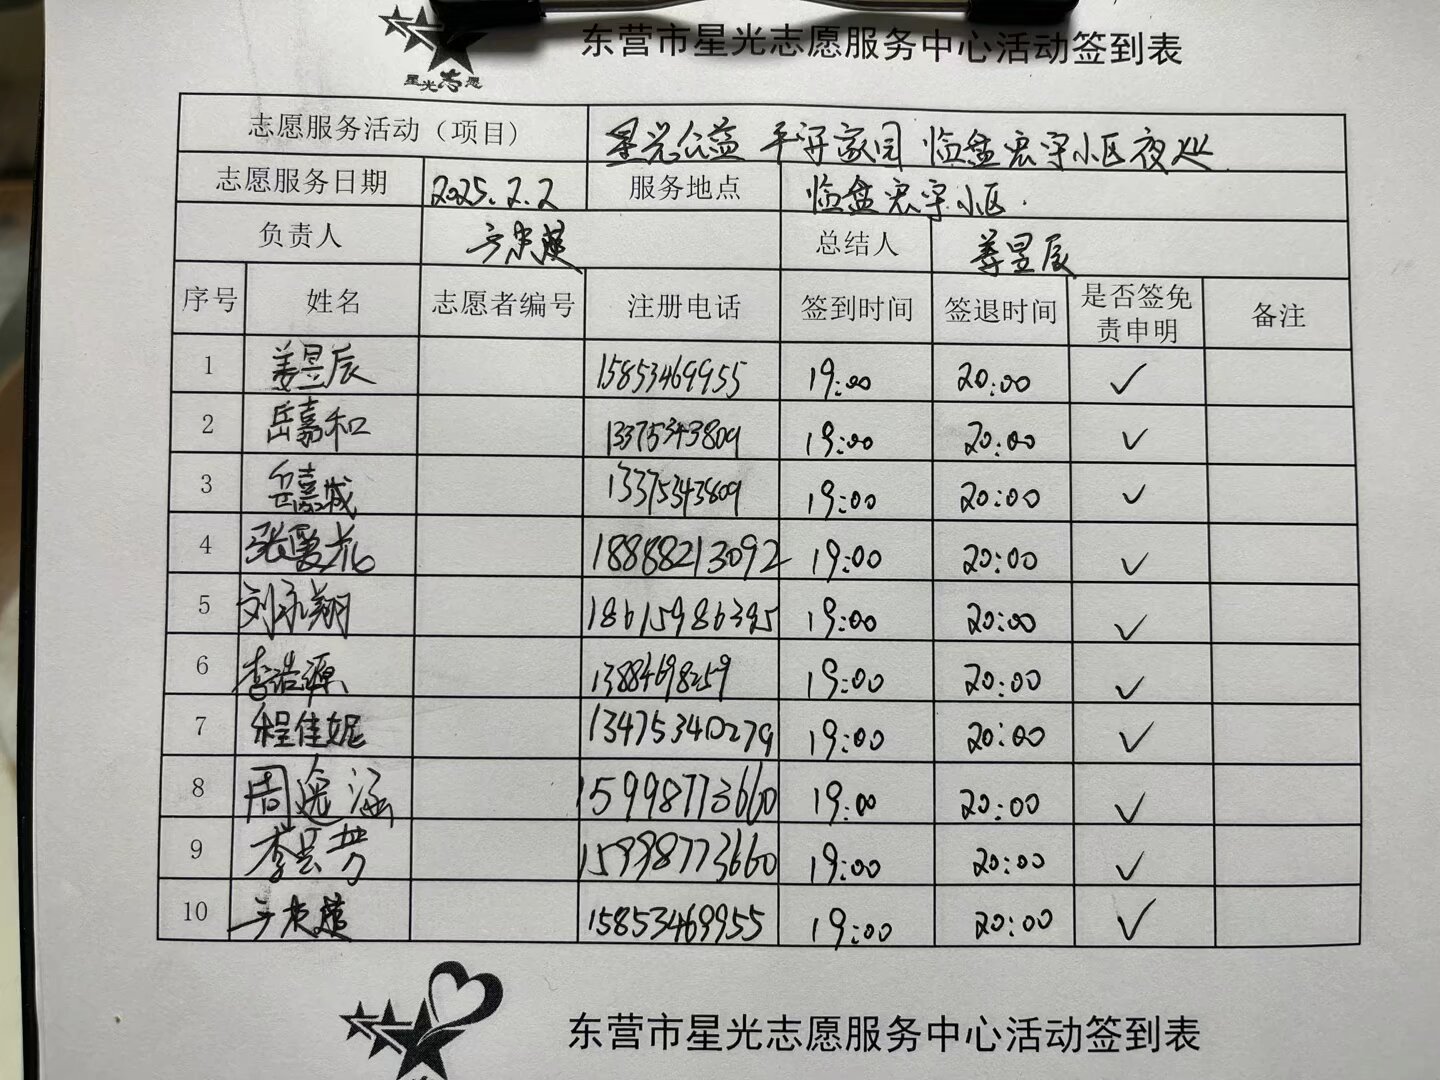 东营市星光志愿服务中心活动签到表
星光志愿
志愿服务活动（项目） 星光公益 平安家园 临盘宏宇小区夜巡
志愿服务日期 2025.2.2 服务地点 临盘宏宇小区.
负责人 总结人 姜昱辰
序号 姓名 志愿者编号 注册电话 签到时间 签退时间 是否签免责申明 备注
1 姜昱辰 15853469955 19:00 20:00 ✓
2 岳嘉和 13375343809 19:00 20:00 ✓
3 岳嘉城 13375343809 19:00 20:00 ✓
4 18888213092 19:00 20:00 ✓
5 刘永翔 18615986395 19:00 20:00 ✓
6 李浩源 13884698259 19:00 20:00 ✓
7 程佳妮 13475340279 19:00 20:00 ✓
8 周逸涵 15998773660 19:00 20:00 ✓
9 李云芳 15998773660 19:00 20:00 ✓
10 15853469955 19:00 20:00 ✓
东营市星光志愿服务中心活动签到表